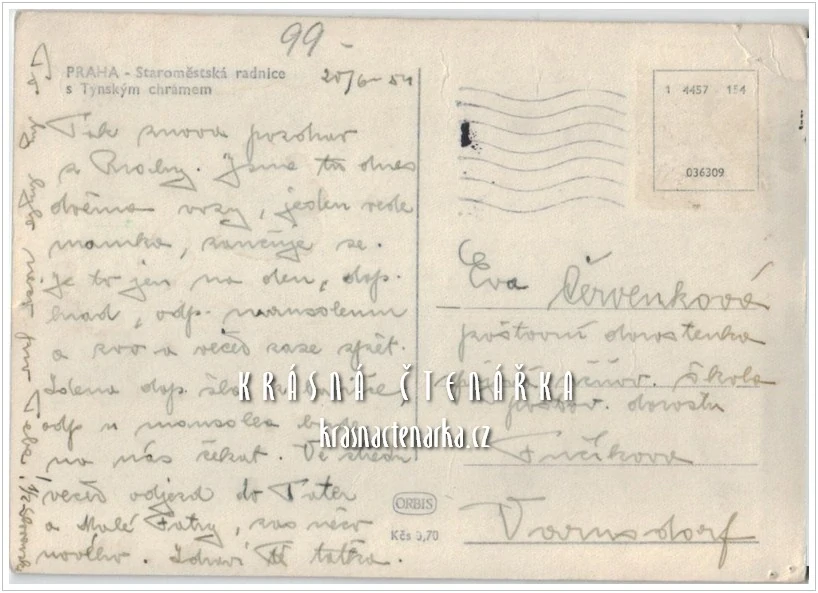 99-
PRAHA - Staroměstská radnice
s Týnským chrámem
20/6-54
Tak znova pozdrav
z Prahy. Jsme tu dnes
dvěma vozy, jeden vede
mamka, zaučuje se.
Je to jen na den, dop.
hrad, odp. mausoleum
a zoo a večer zase zpět.
Zdena dop. šla
odp u mausolea bude
na nás čekat. Ve středu
večer odjezd do Tater
a Malé Fatry, zas něco
nového. Zdraví Tě taťka.
To by bylo něco pro Tebe!
1 4457 154
036309
Eva Červenková
poštovní dorostenka
učňov. škola
poštov. dorostu
Fučíkova
Varnsdorf
ORBIS
Kčs 0,70
KRÁSNÁ ČTENÁŘKA
krasnactenarka.cz